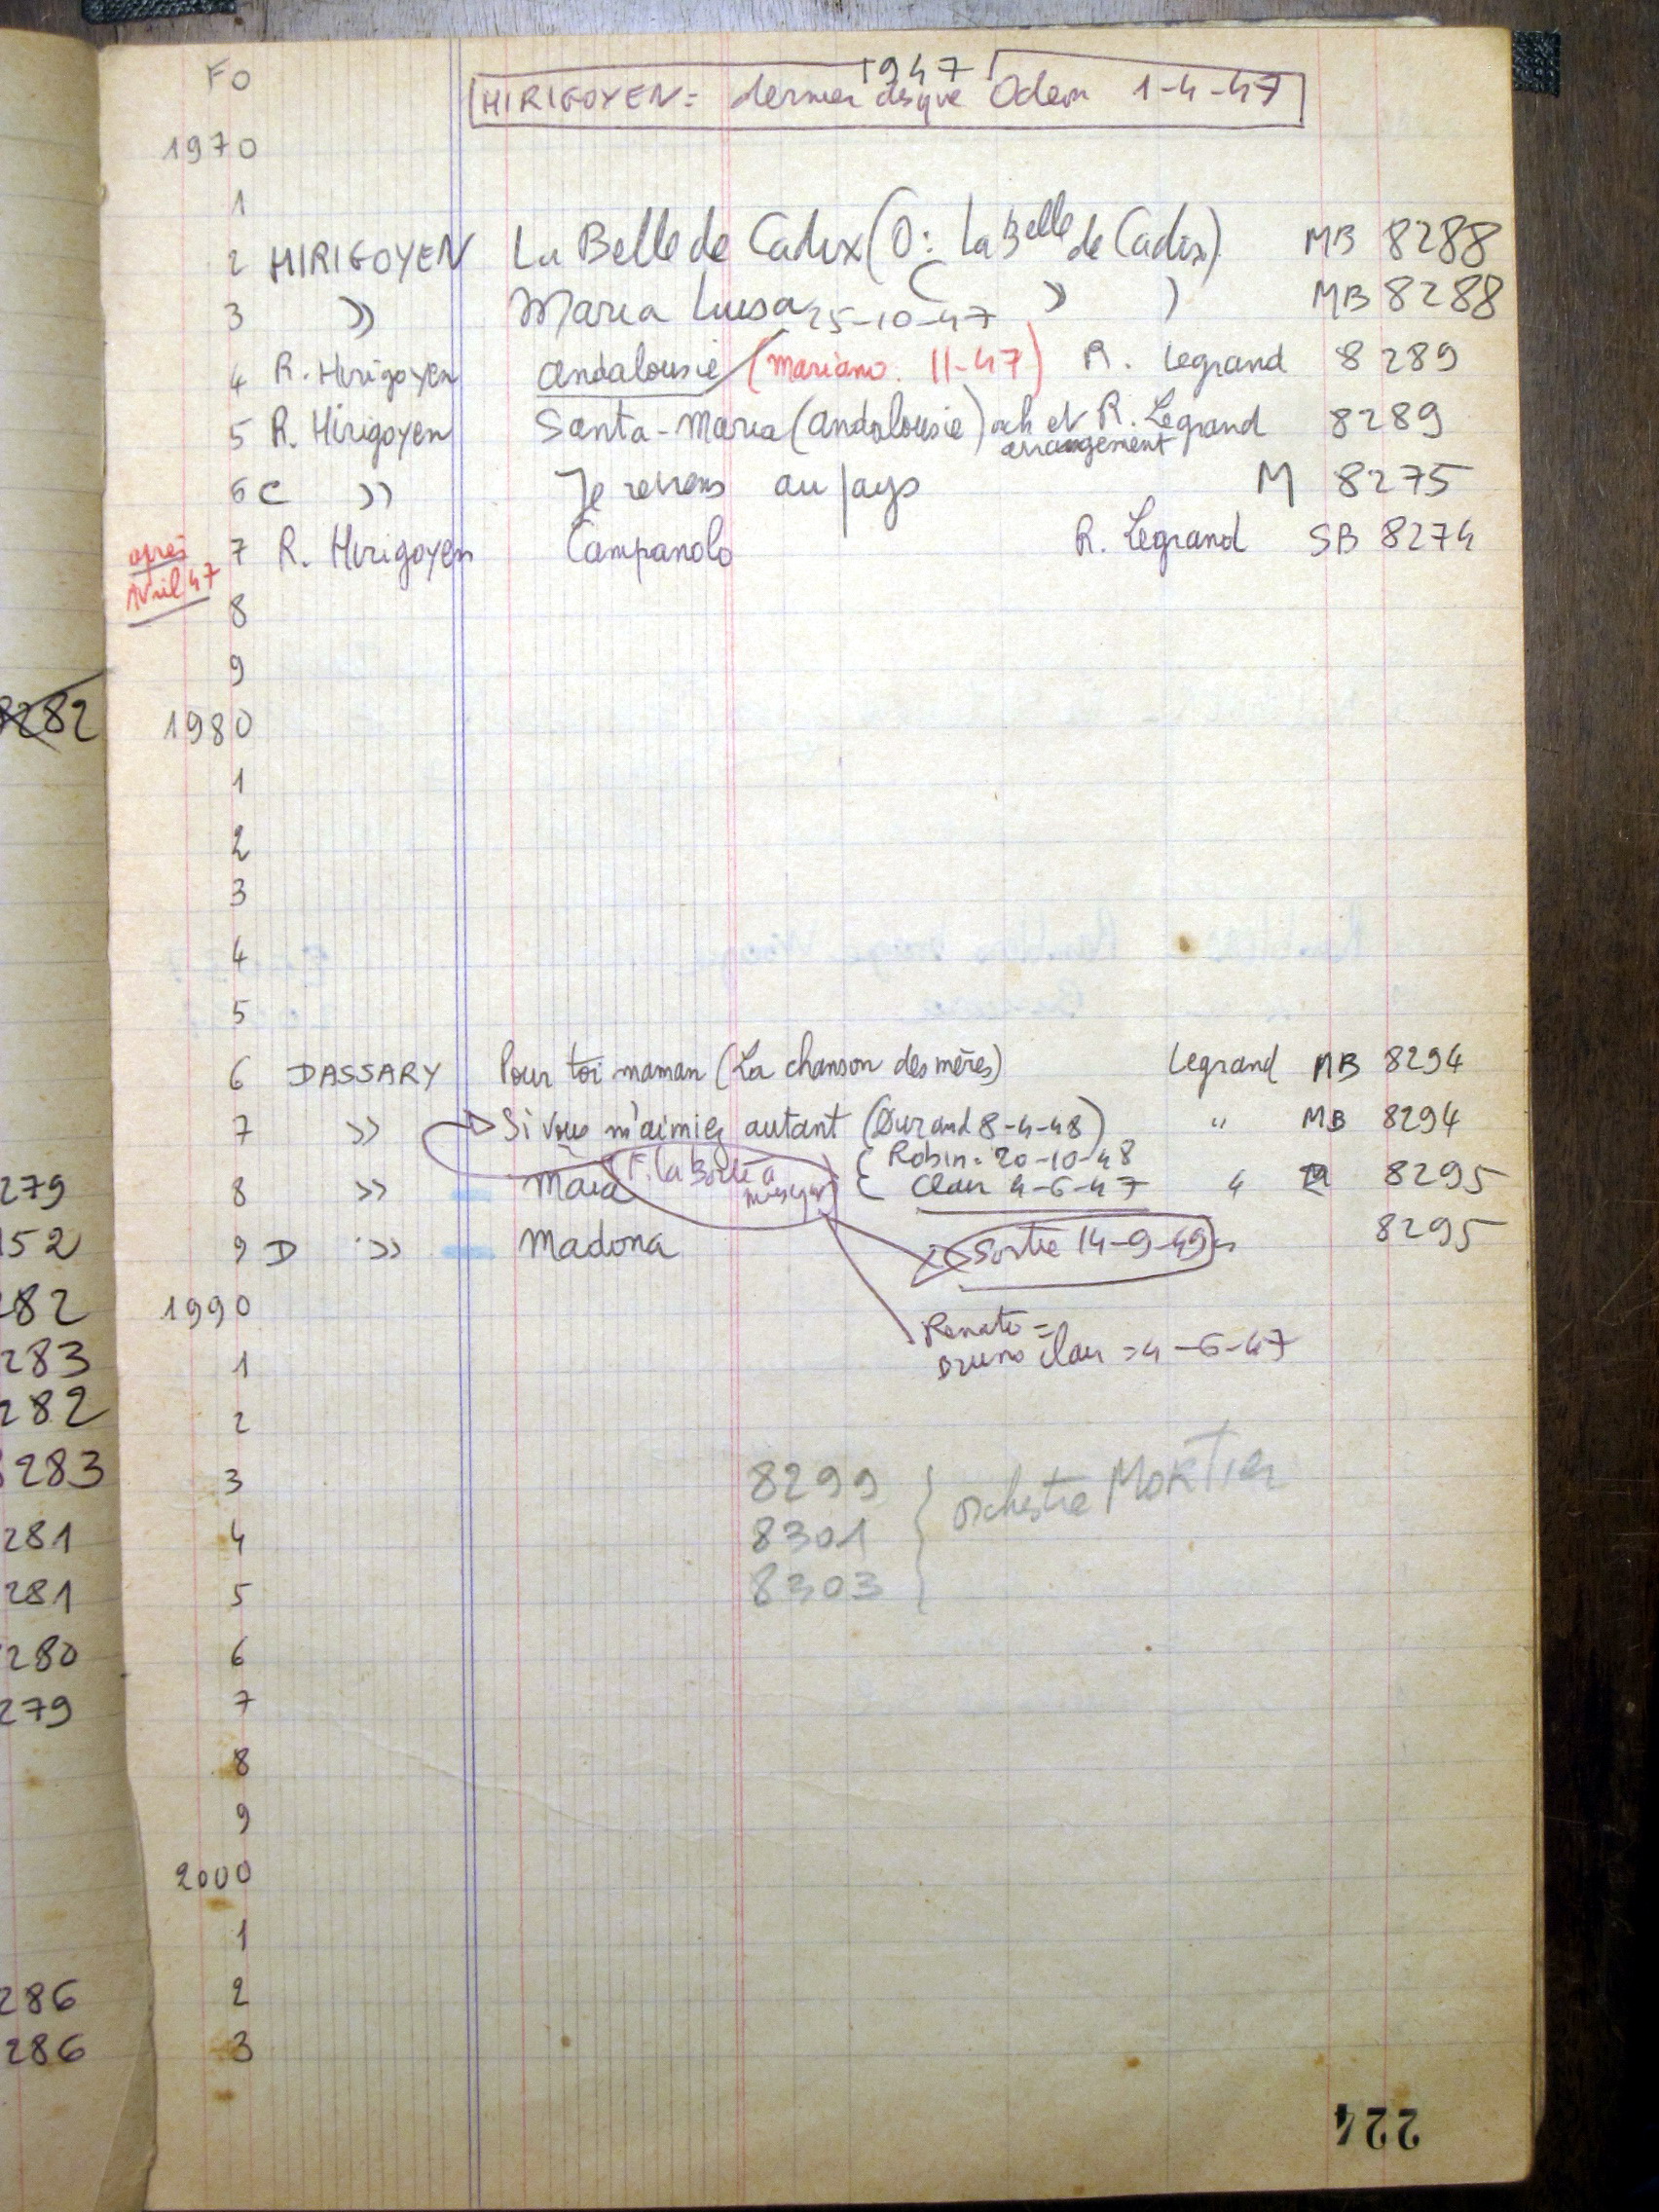 FO
1947
HIRIGOYEN = dernier disque Odeon 1-4-47
1970
1
2 HIRIGOYEN La Belle de Cadix (O: La Belle de Cadix) MB 8288
3 » Maria Luisa ( » ) MB 8288
25-10-47
4 R. Hirigoyen andalousie (Mariano. 11-47) R. Legrand 8289
5 R. Hirigoyen Santa-Maria (andalousie) och et R. Legrand 8289
arrangement
6 C » Je reviens au pays M 8275
après
Avril 47
7 R. Hirigoyen Campanolo R. Legrand SB 8274
8
9
8282
1980
1
2
3
4
5
6 DASSARY Pour toi maman (La chanson des mères) Legrand MB 8294
7 » Si vous m'aimiez autant (Durand 8-4-48) " MB 8294
F. La Boîte à
musique
{ Robin = 20-10-48
Clair 4-6-47
279
8 » Maia " 8295
152
9 D » Madona Sortie 14-9-49 " 8295
282
1990
Renato =
Bruno Clair = 4-6-47
283
1
282
2
283
3 8299 { orchestre MORTier
281
4 8301
281
5 8303
280
6
279
7
8
9
2000
1
286
2
286
3
224